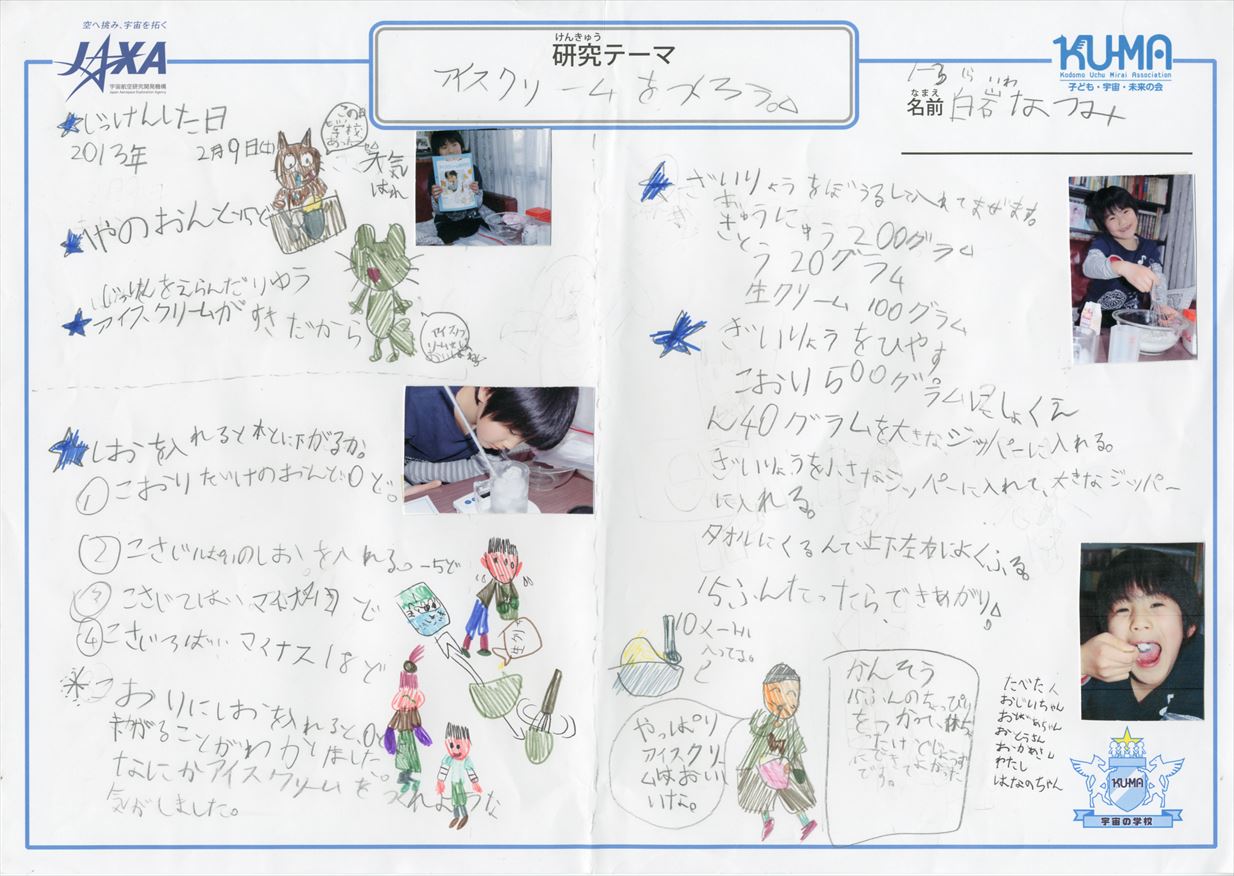 空へ挑み、宇宙を拓く
JAXA
宇宙航空研究開発機構
Japan Aerospace Exploration Agency
けんきゅう
研究テーマ
アイスクリームをつくろう。
KU-MA
Kodomo Uchu Mirai Association
子ども・宇宙・未来の会
1-3 らいわ
なまえ
名前 白岩なつみ
じっけんした日
2013年 2月9日(土)
天気
はれ
この日
学校
あった
へやのおんど15ど
じっけんをえらんだりゆう
アイスクリームがすきだから
アイスク
リームは
おいしいよね
しおを入れると本とに下がるか。
① こおりだけのおんど0ど。
② こさじ1ぱいのしおを入れる。-5ど
③ こさじ2はい マイナス ど
④ こさじ3ばい マイナス18ど
こおりにしおを入れると、0ど
下がることがわかりました。
なにかアイスクリームをつくれような
気がしました。
ざいりょうをぼうるに入れてまぜます。
ぎゅうにゅう200グラム
さとう20グラム
生クリーム100グラム
ざいりょうをひやす
こおり500グラムにしょくえ
ん40グラムを大きなジッパーに入れる。
ざいりょうを小さなジッパーに入れて、大きなジッパー
に入れる。
タオルにくるんで上下左右によくふる。
15ふんたったらできあがり
10メートル
入ってる。
やっぱり
アイスクリー
ムはおいし
いな。
かんそう
15ふんの
をつかって、
だけどじょうず
にできてよかった
です。
たべた人
おじいちゃん
おばあちゃん
おとうさん
おかあさん
わたし
はなのちゃん
KUMA
宇宙の学校